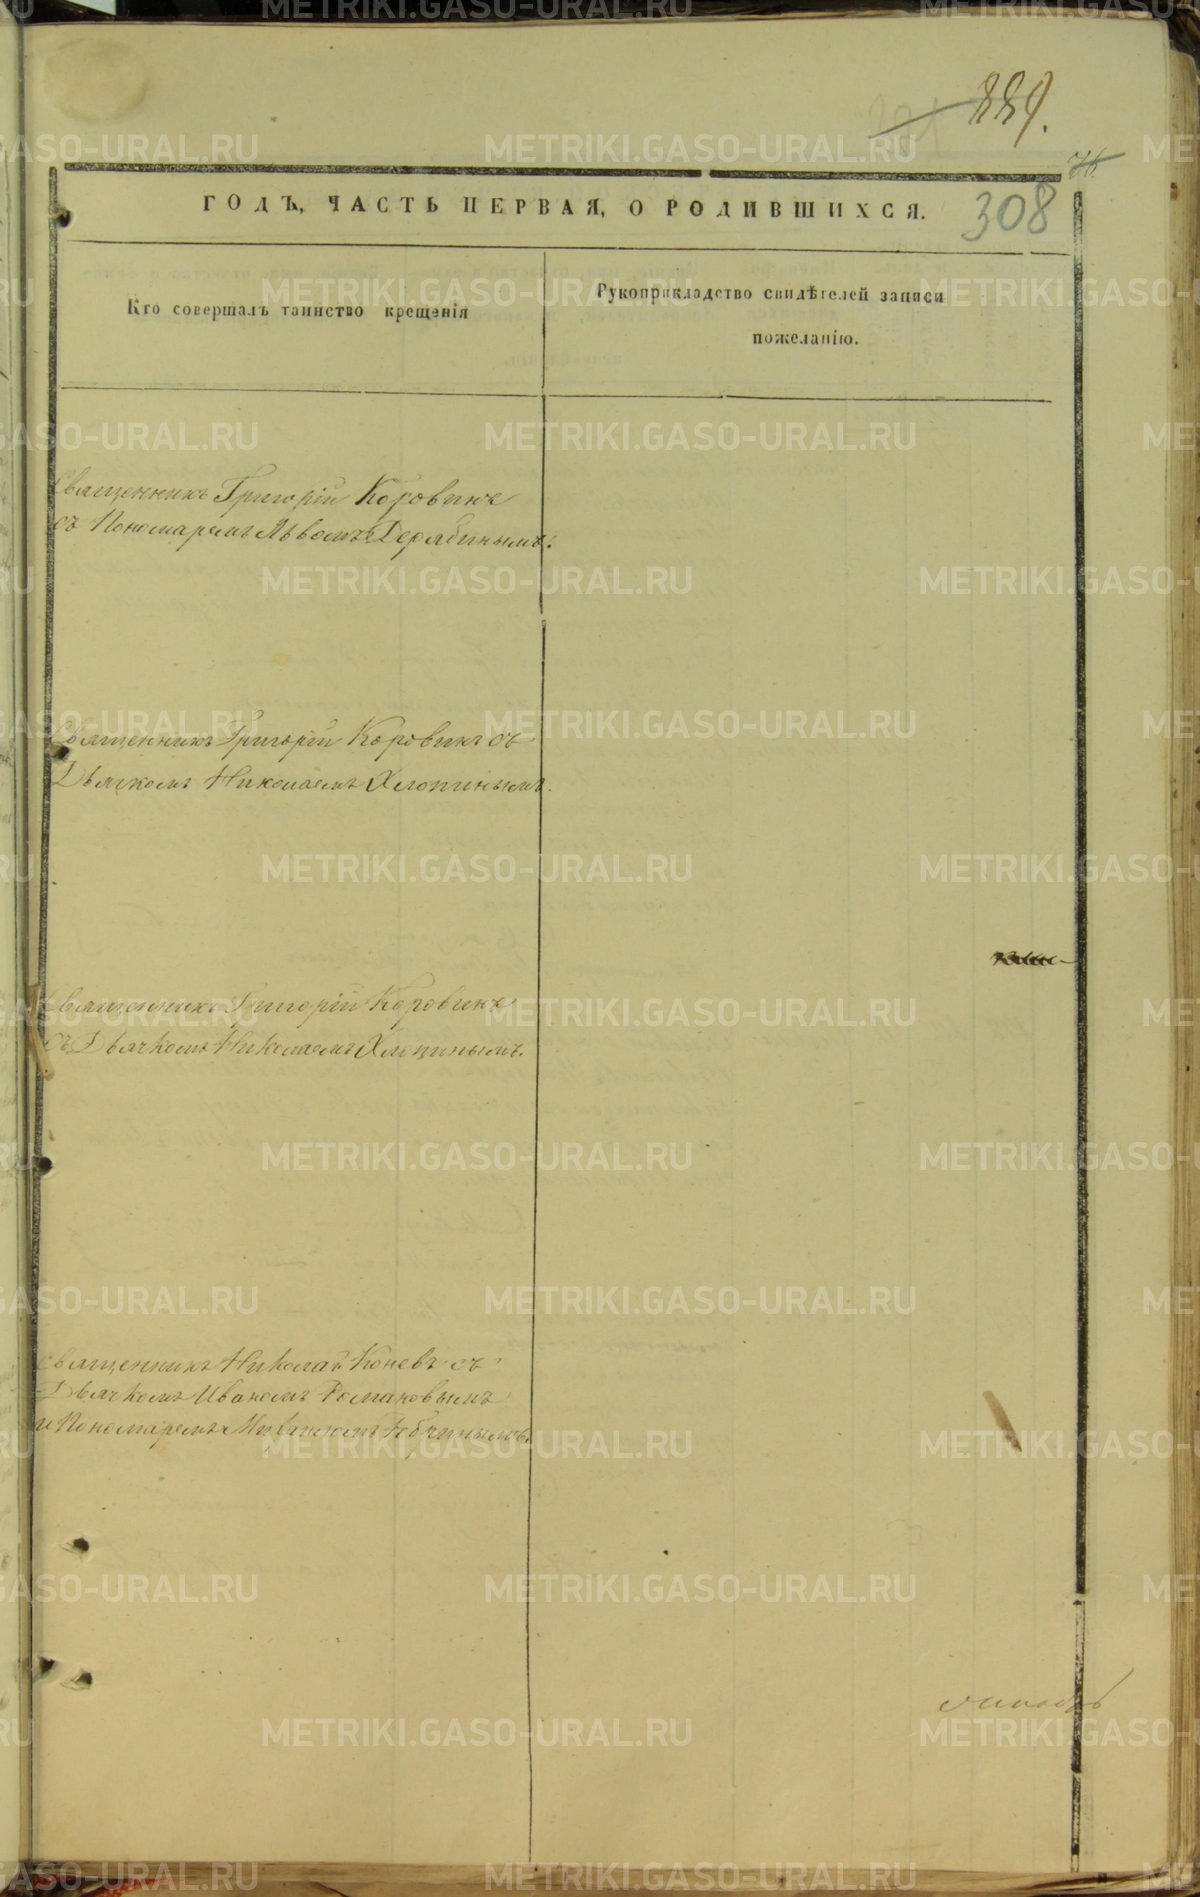 889.
308
ГОДЪ, ЧАСТЬ ПЕРВАЯ, О РОДИВШИХСЯ.
Кто совершалъ таинство крещенія
Рукоприкладство свидѣтелей записи
пожеланію.
Священникъ Григорій Коровинъ
съ Пономаремъ Львомъ Дерябинымъ.
Священникъ Григорій Коровинъ съ
Дьячкомъ Николаемъ Хлопинымъ.
Священникъ Григорій Коровинъ
съ Дьячкомъ Николаемъ Хлопинымъ.
Священникъ Николай Коневъ съ
Дьячкомъ Иваномъ Романовымъ
и Пономаремъ
METRIKI.GASO-URAL.RU